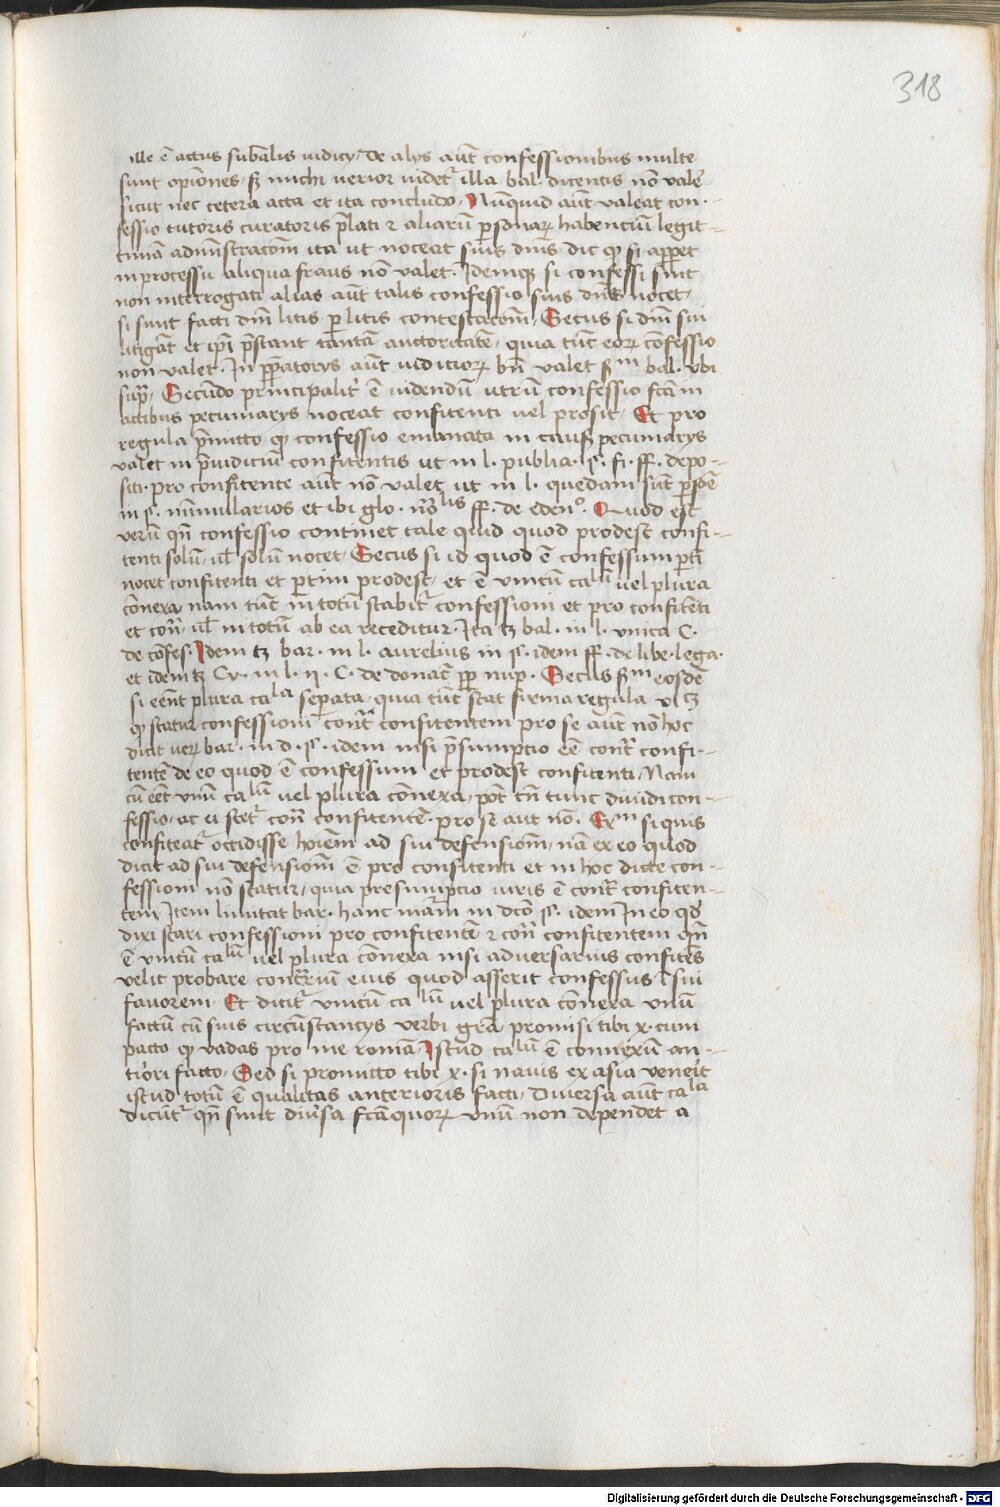 318
ille ē actus subālis iudicij. de alijs aūt confessionibus multe
sunt opiōnes. sꝫ michi uerior uidetᷣ illa bal. dicentis nō valē
sicut nec cetera acta et ita concludo. Nūnquid aūt valeat con-
fessio tutoris curatoris p̄lati ⁊ aliarū ꝑsonarꝝ habenciū legit-
timā admīstracōm ita ut noceat suis dn̄is dic ꝙ si apꝑet
in processu aliqua fraus nō valet. Idemqꝫ si confessi sint
non interrogati alias aūt talis confessio suis dn̄is nocet.
si sunt facti dn̄i litis ꝑ litis contestacōm. Secus si dn̄i sui
litigāt et ip̄i p̄stant tantā auctoritatē. quia tūc eorꝝ cōfessio
non valet. In p̄ꝑatorijs aūt iuditiorꝝ bn̄ valet sᷤm bal. vbi
sup̄. Secūdo principalit̾ ē uidendū utrū confessio fc̄a in
actibus pecuniarijs noceat confitenti uel prosit. Et pro
regula p̄mitto ꝙ confessio emanata in causis pecuniarijs
valet in p̄iudiciū confitentis ut in l. publia. §. fi. ff. depo-
siti. pro confitente aūt nō valet ut in l. quedam sūt ꝑsōe
in §. nūmularios et ibi glo. nōlis ff. de edenº. Quod est
verū qn̄ confessio continet tale quid quod prodest confi-
tenti solū. ul̄ solū nocet. Secus si id quod ē confessum ꝑti
nocet confitenti et ꝑtim prodest, et ē vnicū calū uel plura
cōnexa nam tūc in totū stabitᷣ confessioni et pro confitēti
et con̄. ul̄ in totū ab ea receditur. Ita tꝫ bal. in l. vnica C.
de cōfes. Idem tꝫ bar. in l. aurelius in §. idem ff. de libe. lega.
et idem tꝫ Cy. in l. ij. C. de donac̄ pp̄ nup. Secus sᷤm eosdē
si eēnt plura calia seꝑata. quia tūc stat firma regula vlꝫ
ꝙ statur confessioni cont̄ confitentem pro se aūt nō hoc
dicit uerꝝ bar. in d. §. idem nisi p̄sumptio eē cont̄ confi-
tentē de eo quod ē confessum et prodest confitenti. Nam
cū eēt vnū calū uel plura cōnexa, pōt tn̄ tunc diuidi con-
fessio. ac ei stetᷣ con̄ confitentē. pro se aut nō. Exm si quis
confiteatᷣ occidisse hoīem ad sui defensiom̄. nā ex eo quod
dicit ad sui defensiom̄ ē pro confitenti et in hoc dicte con-
fessioni nō statur, quia presumptio iuris ē cont̄ confiten-
tem Item limitat bar. hanc mat̄m in dc̄o §. idem In eo qd̄
dixi stari confessioni pro confitentē ⁊ con̄ confitentem qn̄
ē vnicū calū uel plura cōnexa nisi adversarius confitēs
velit probare contrriū eius quod asserit confessus ī sui
fauorem. Et dicitᷣ vnicū calū uel plura cōnexa vnū
factū cū suis circūstancijs verbi gr̄a, promisi tibi x. cum
pacto ꝙ vadas pro me romā. Istud calū ē connexū an-
tiori facto. Sed si promitto tibi x. si nauis ex asia uenerit
istud totū ē qualitas anterioris facti. Diuersa aūt cala
dicūtᷣ qn̄ sunt diūsa fc̄a quorꝝ vnū non dependet a
Digitalisierung gefördert durch die Deutsche Forschungsgemeinschaft - DFG